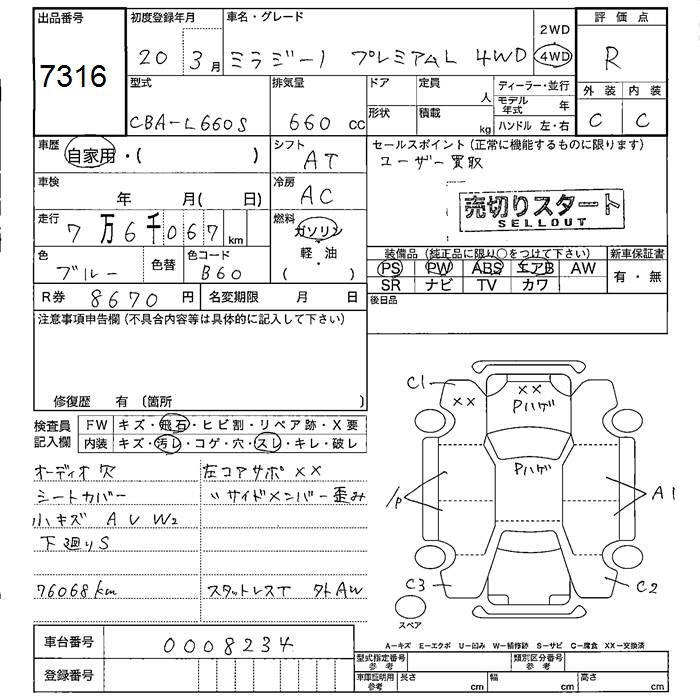 出品番号
7316
初度登録年月
20 3月
車名・グレード
ミラジーノ プレミアムL 4WD
2WD
4WD
評価点
R
型式
CBA-L660S
排気量
660 cc
ドア
定員
人
ディーラー・並行
モデル年式 年
形状
積載
kg
ハンドル 左・右
外装 内装
C C
車歴
自家用・( )
シフト
AT
セールスポイント(正常に機能するものに限ります)
ユーザー買取
売切りスタート
SELLOUT
車検
年 月( 日)
冷房
AC
走行
7万6千067km
燃料
ガソリン
軽・油
( )
色
ブルー
色替
色コード
B60
装備品(純正品に限り○をつけて下さい)
PS PW ABS エアB AW
SR ナビ TV カワ
新車保証書
有・無
R券 8670円
名変期限 月 日
後日品
注意事項申告欄(不具合内容等は具体的に記入して下さい)
修復歴 有(箇所 )
検査員記入欄
FW キズ・飛石・ヒビ割・リペア跡・X要
内装 キズ・汚レ・コゲ・穴・スレ・キレ・破レ
オーディオ穴
シートカバー
小キズ A U W2
下廻りS
76068km
左コアサポ××
〃サイドメンバー歪み
スタットレスT 外AW
C1
××
××
Pハゲ
Pハゲ
/P
A1
C3
C2
スペア
A-キズ E-エクボ U-凹み W-補修跡 S-サビ C-腐食 XX-交換済
車台番号
0008234
登録番号
型式指定番号 参考
類別区分番号 参考
車庫証明用 参考
長さ cm
幅 cm
高さ cm